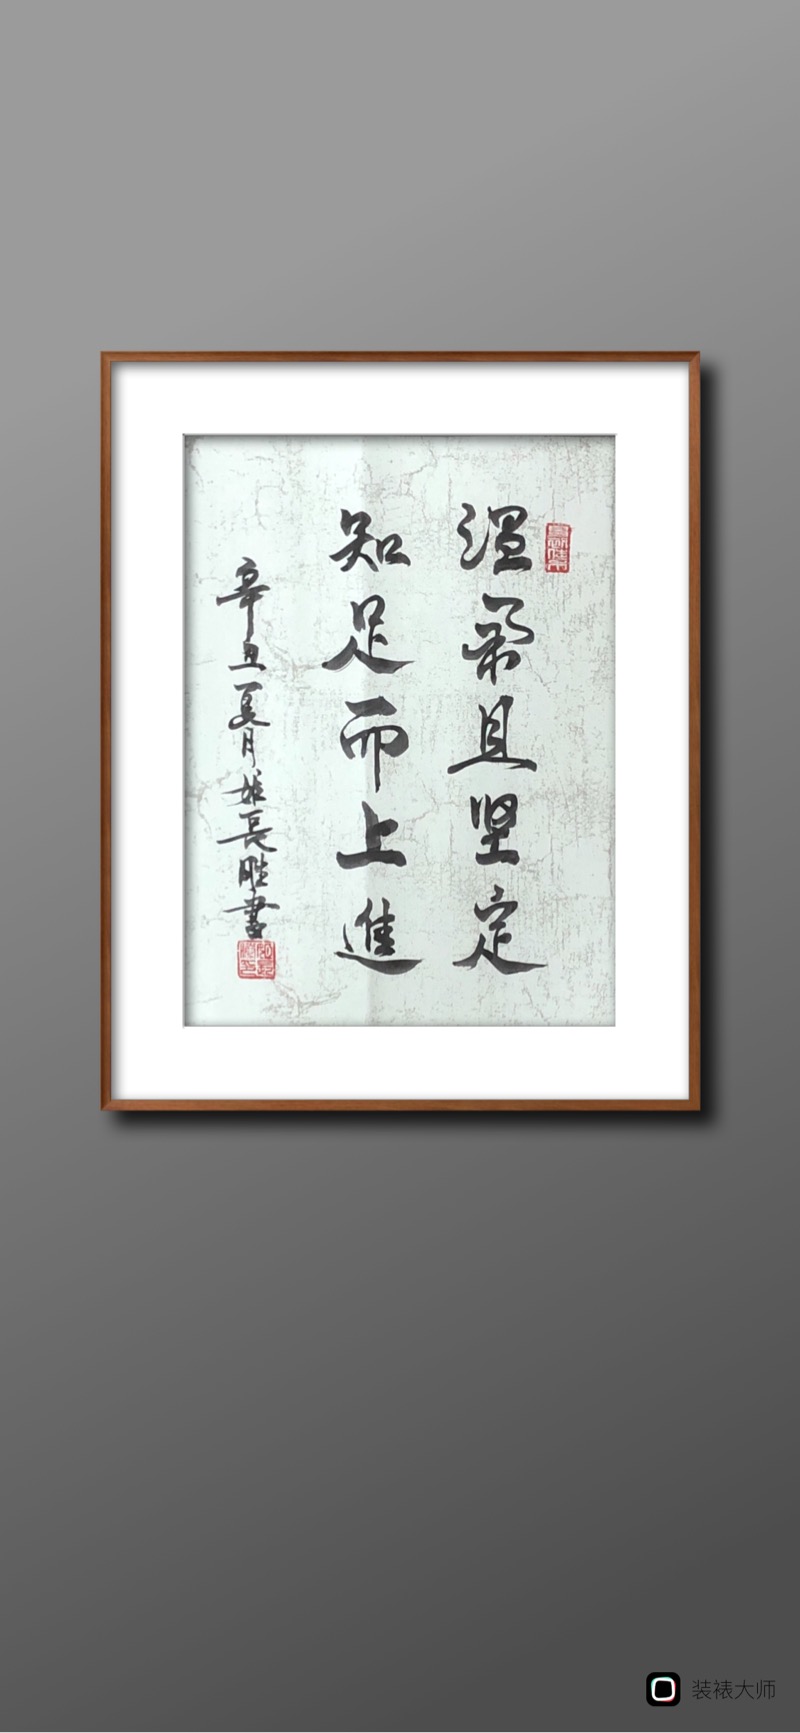 温柔且坚定
知足而上進
辛丑夏月姬長勝書
装裱大师